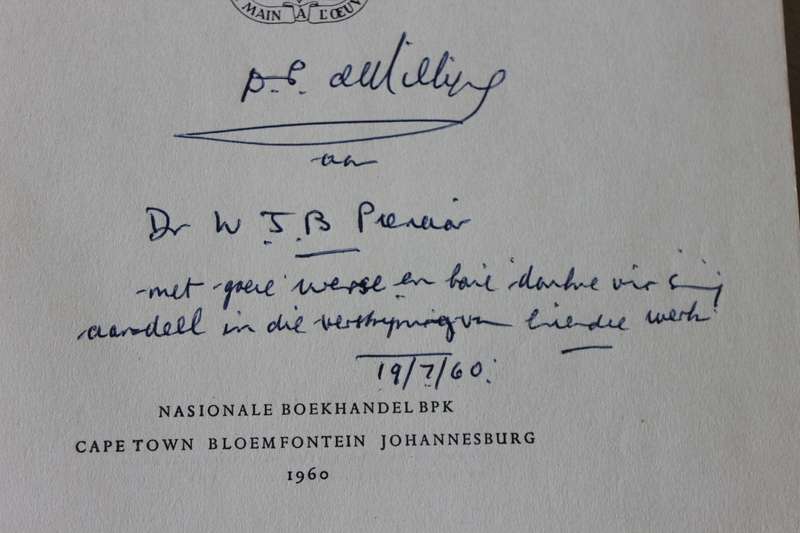 MAIN À L'ŒUV
D.P. de Villiers
aan
Dr W J B Pienaar
met goeie wense en baie dankie vir sy
aandeel in die verskyning van hierdie werk
19/7/60.
NASIONALE BOEKHANDEL BPK
CAPE TOWN BLOEMFONTEIN JOHANNESBURG
1960